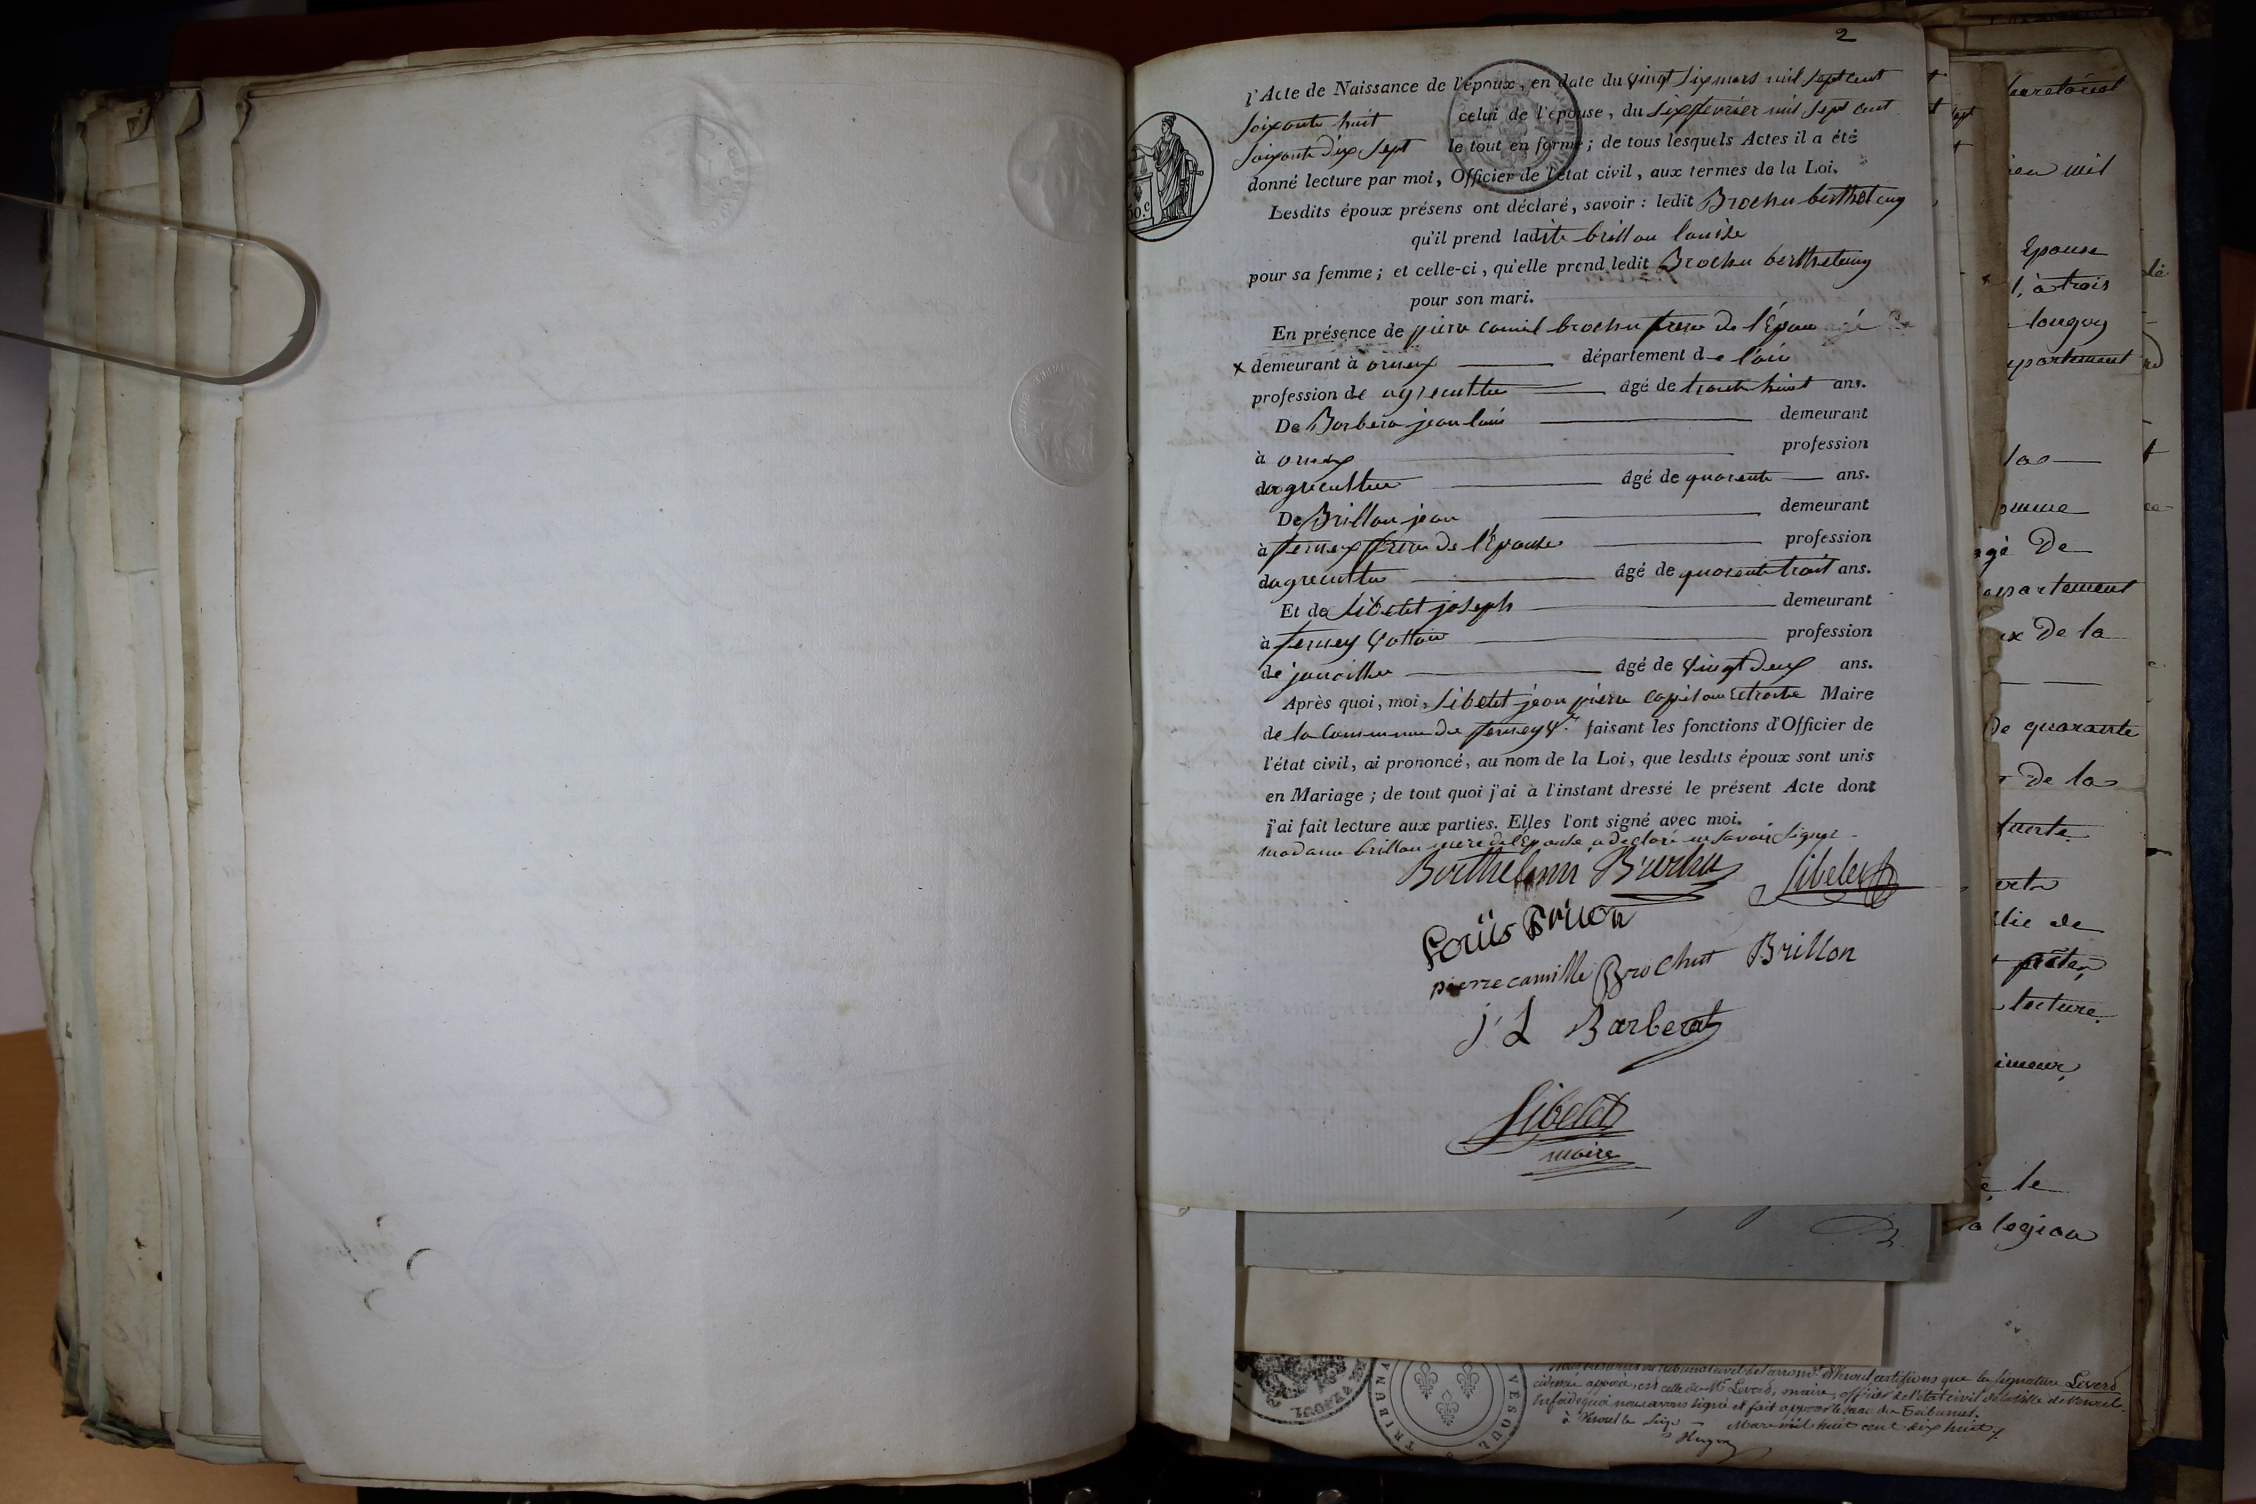 2
l'Acte de Naissance de l'époux, en date du vingt six mars mil sept cent
soixante huit celui de l'épouse, du six fevrier mil sept cent
soixante dix sept le tout en forme; de tous lesquels Actes il a été
donné lecture par moi, Officier de l'état civil, aux termes de la Loi.
Lesdits époux présens ont déclaré, savoir : ledit Brochu berthelemy
qu'il prend ladite brillon louise
pour sa femme; et celle-ci, qu'elle prend ledit Brochu berthelemy
pour son mari.
En présence de pierre camil brochu frere de l'Epoux
x demeurant à ornex département de l'ain
profession de agriculteur âgé de trente huit ans.
De Barbera jean louis demeurant
à ornex profession
dagriculteur âgé de quarente ans.
De Brillon jean demeurant
à fernex frere de l'Epouse profession
dagriculteur âgé de quarente trois ans.
Et de Sibelet joseph demeurant
à ferney Voltaire profession
de joaillier âgé de vingt deux ans.
Après quoi, moi, Sibelet jean pierre capitaine Maire
de la Commune de ferney V. faisant les fonctions d'Officier de
l'état civil, ai prononcé, au nom de la Loi, que lesdits époux sont unis
en Mariage; de tout quoi j'ai à l'instant dressé le présent Acte dont
j'ai fait lecture aux parties. Elles l'ont signé avec moi.
madame brillon mere de l'Epouse a declaré ne savoir signer
Berthelemi Brochu Sibelet
Louis Brillon
pierre camille Brochut Brillon
J L Barberat
Sibelet
maire
50.c
secretarial
mil
Epouse
l, à trois
longvy
partement
omme
agé De
partement
ux De la
De quarante
De la
lie de
lecture
le
la legion
certifions que la signature Levert
maire, officier de l'état civil de la ville de Vesoul
Mars mil huit cent dix huit
TRIBUNA VESOUL